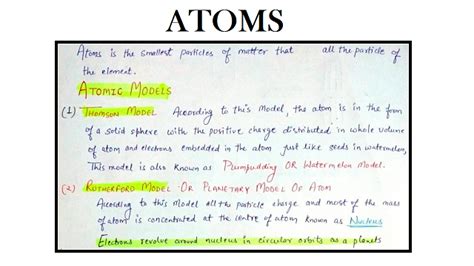 ATOMS
Atoms is the smallest particles of matter that all the particle of
the element.
ATOMIC MODELS
(1) THOMSON MODEL According to this model, the atom is in the form
of a solid sphere with the positive charge distributed in whole volume
of atom and electrons embedded in the atom just like seeds in watermelon,
This model is also known as Plumpudding OR Watermelon Model.
(2) ROTHERFORD MODEL OR PLANETARY MODEL OF ATOM
According to this Model all the particle charge and most of the mass
of atom is concentrated at the centre of atom known as NUCLEUS
Electrons revolve around nucleus in circular orbits as a planets